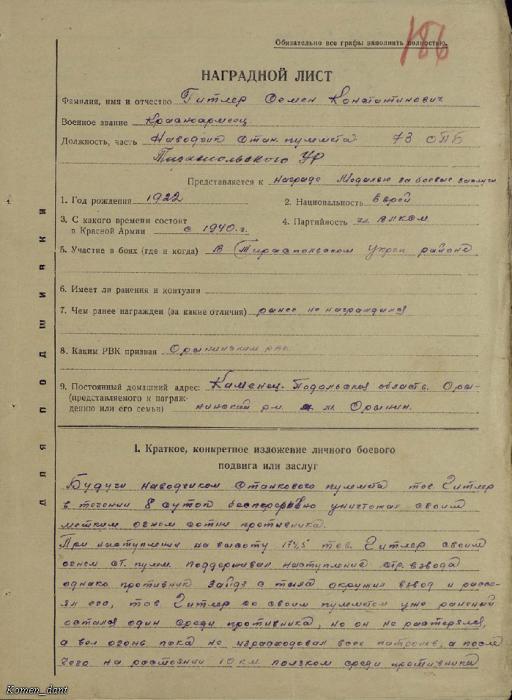 Обязательно все графы заполнить полностью.
186
НАГРАДНОЙ ЛИСТ
Фамилия, имя и отчество Гитлер Семен Константинович
Военное звание Красноармеец
Должность, часть Наводчик стан. пулемета 73 ОПБ
Тираспольского УР
Представляется к награде Медалью за боевые заслуги
1. Год рождения 1922 2. Национальность еврей
3. С какого времени состоит
в Красной Армии с 1940 г. 4. Партийность чл. ВЛКСМ
5. Участие в боях (где и когда) В Тираспольском Укреп. районе
6. Имеет ли ранения и контузии
7. Чем ранее награжден (за какие отличия) ранее не награждался
8. Каким РВК призван Орынинским рвк
9. Постоянный домашний адрес: Каменец-Подольская область. Оры-
(представляемого к награж-
дению или его семьи) нинский р-н м. Орынин.
для подшивки
I. Краткое, конкретное изложение личного боевого
подвига или заслуг
Будучи наводчиком станкового пулемета тов Гитлер
в течении 8 суток беспрерывно уничтожал своим
метким огнем сотни противника.
При наступлении на высоту 174,5 тов. Гитлер своим
огнем ст. пулем. поддерживал наступление стр. взвода
однако противник зайдя с тыла окружил взвод и рассе-
ял его, тов Гитлер со своим пулеметом уже раненый
остался один среди противника, но он не растерялся,
а вел огонь пока не израсходовал всех патронов, а после
чего на расстоянии 10 км ползком среди противника
Komen_dant